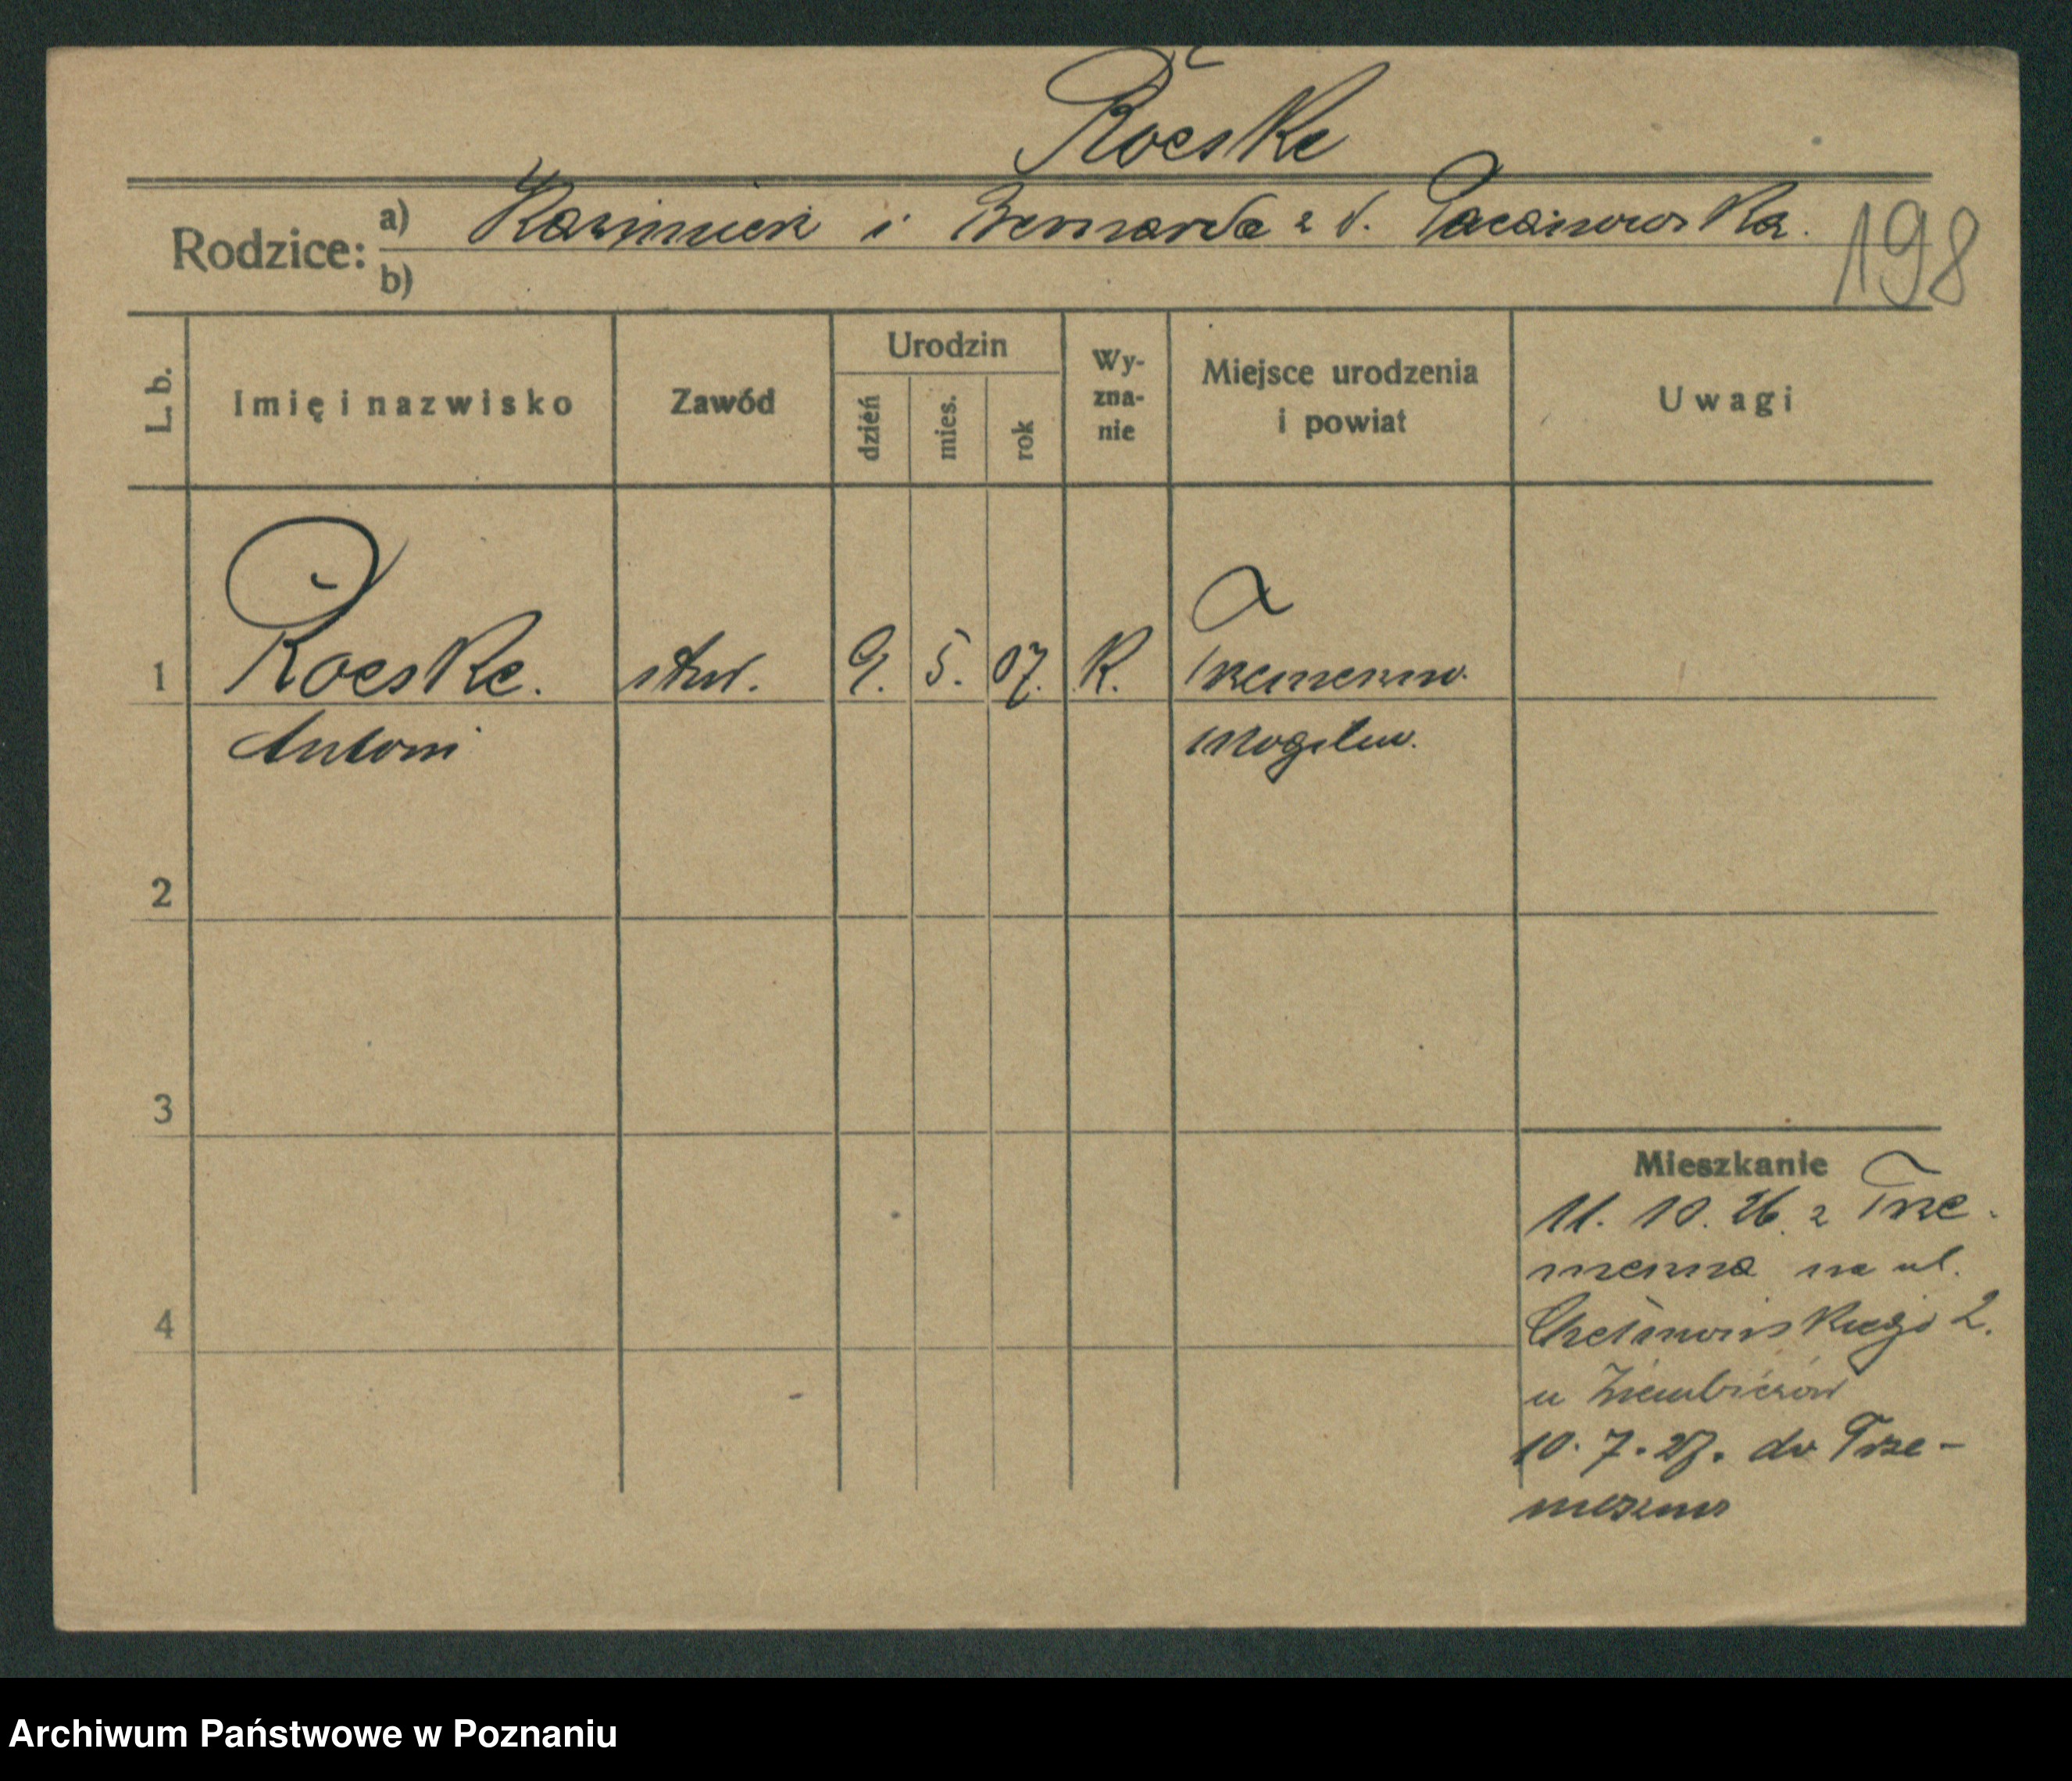 Roeske
Rodzice: a) Kazimierz i Bernarda z d. Pacanowska. 198
b)
L. b. Imię i nazwisko Zawód Urodzin dzień mies. rok Wy-zna-nie Miejsce urodzenia i powiat Uwagi
1 Roeske. stud. 9. 5. 07. K. Trzemeszno.
Antoni Mogilno.
2
3
Mieszkanie
11. 10. 26. z Trze-
meszna na ul.
4 Chełmońskiego 2.
u
10. 7. 27. do Trze-
meszno
Archiwum Państwowe w Poznaniu